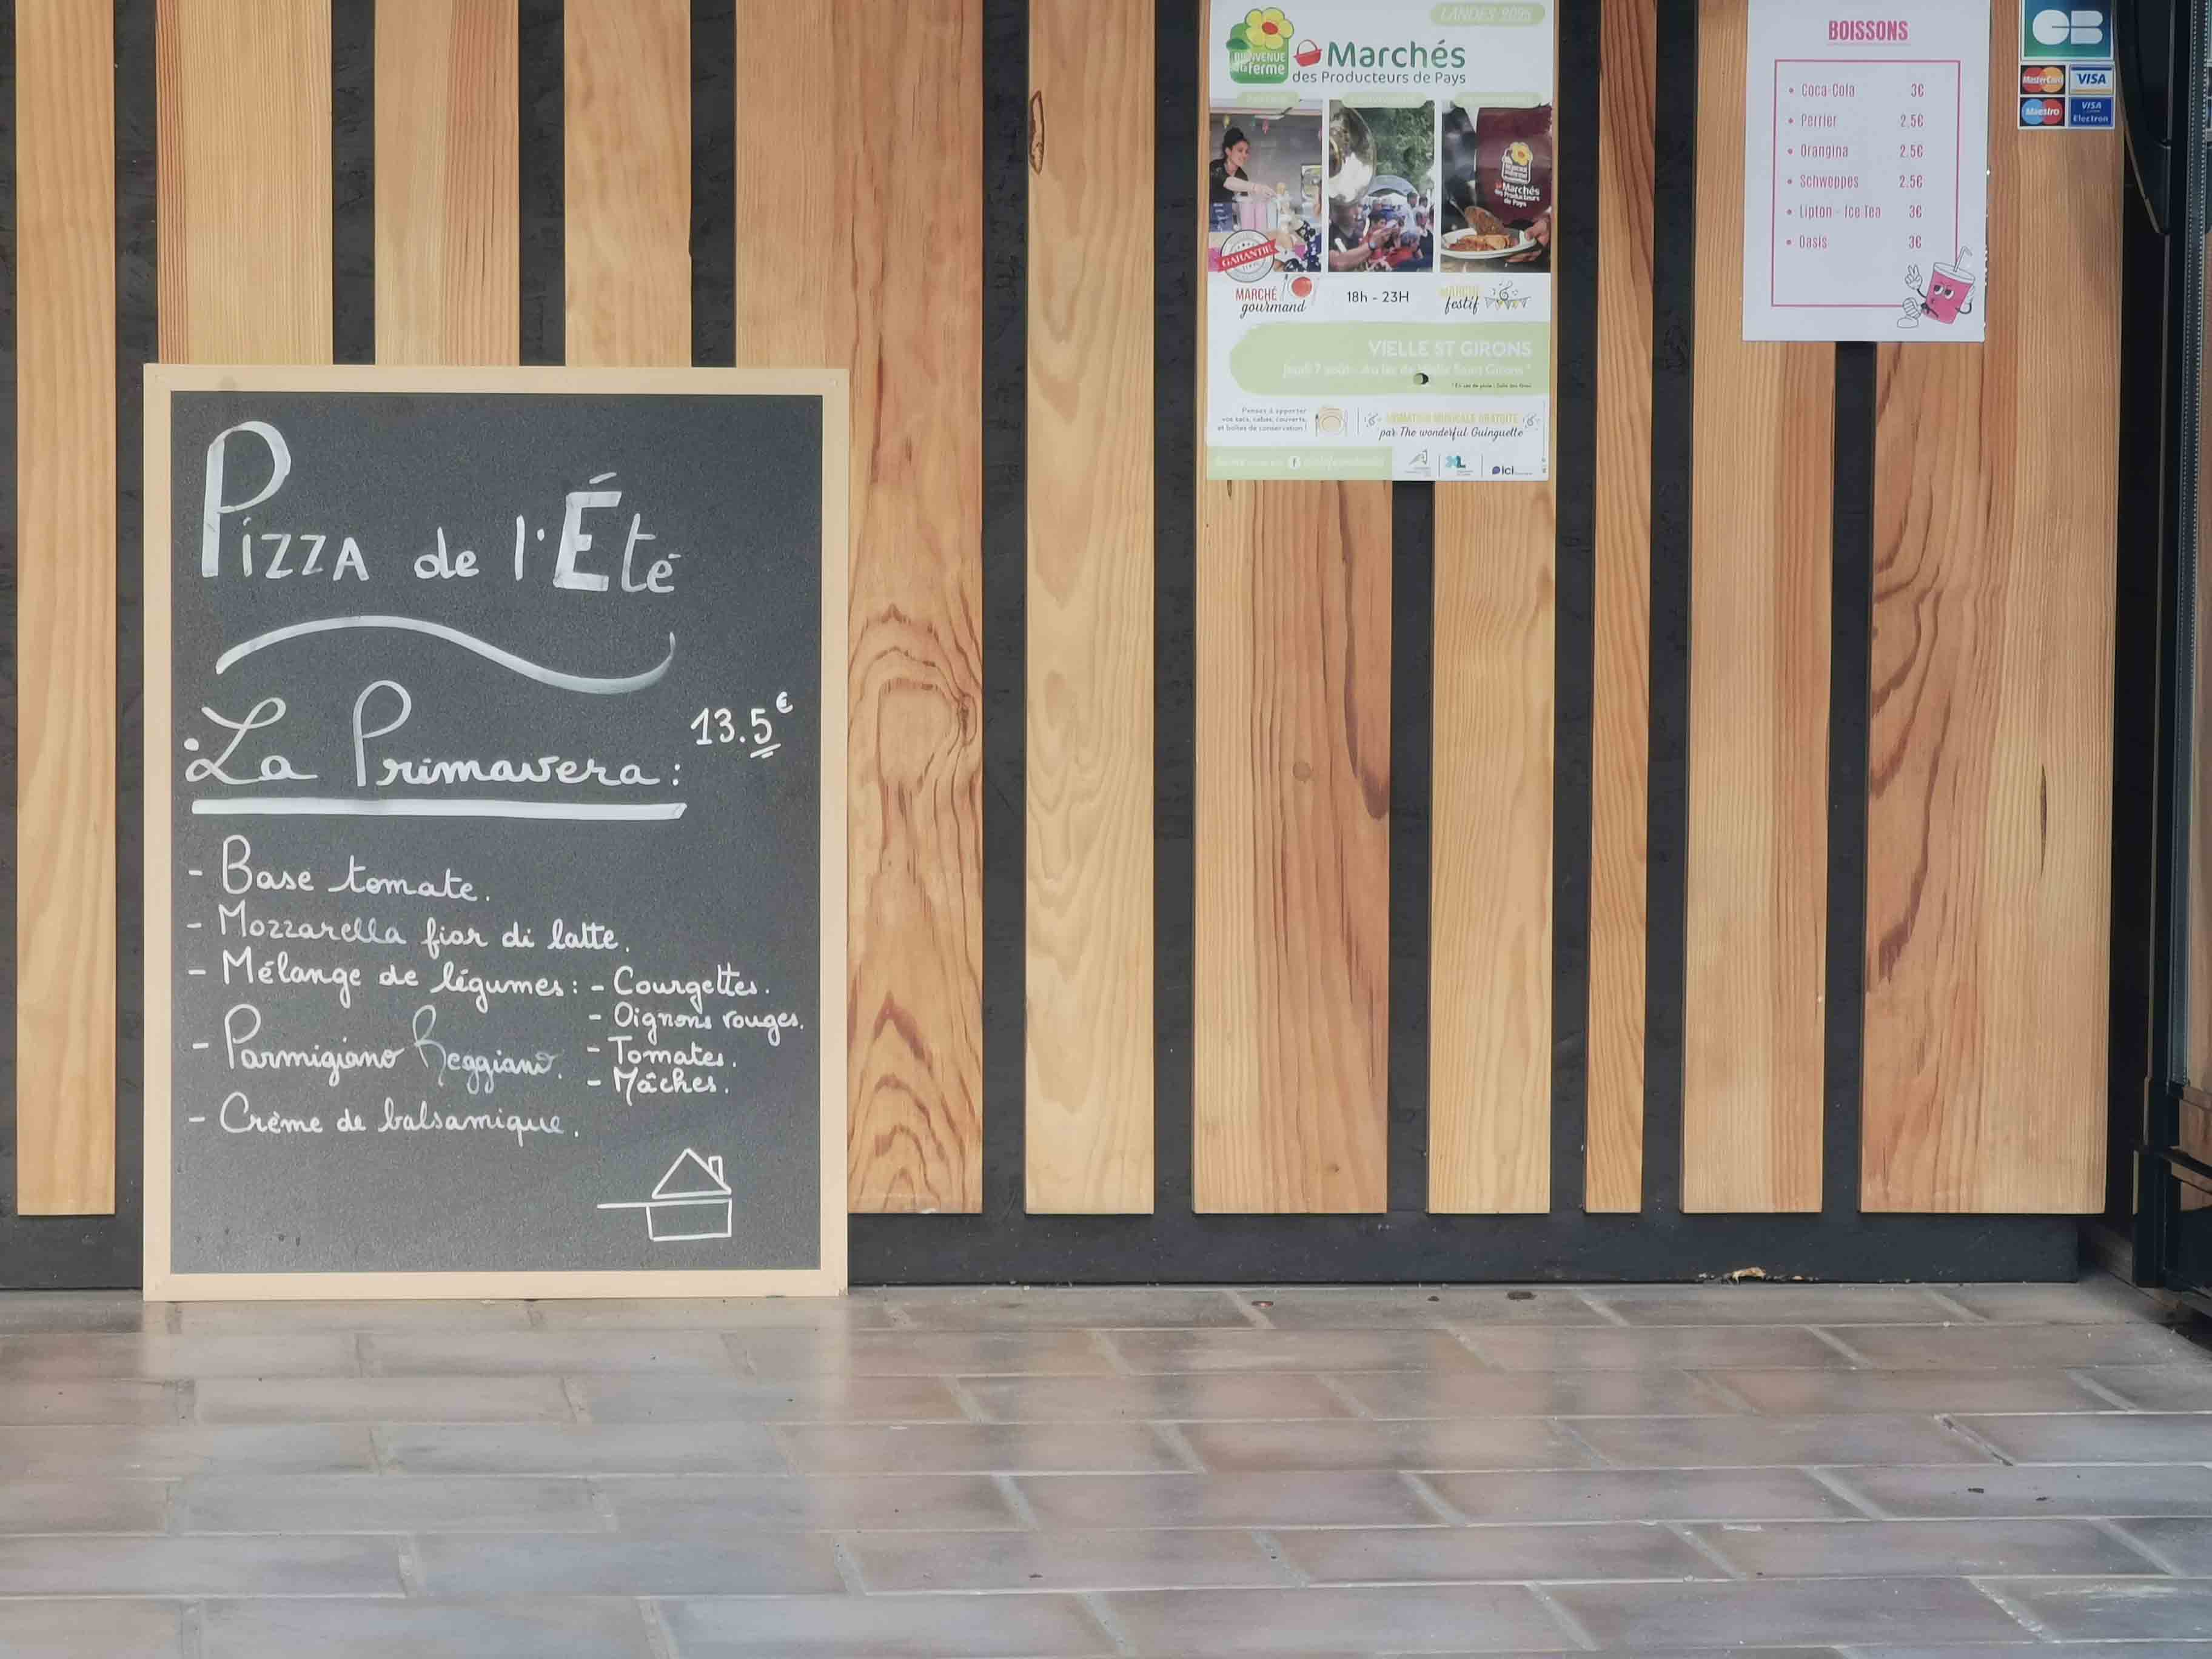 Pizza de l'Été
La Primavera : 13.5€
- Base tomate.
- Mozzarella fior di latte.
- Mélange de légumes : - Courgettes.
- Oignons rouges.
- Tomates.
- Mâches.
- Parmigiano Reggiano.
- Crème de balsamique.
LANDES 2025
BIENVENUE
à la ferme
Marchés
des Producteurs de Pays
Marchés
des Producteurs
de Pays
GARANTIE
MARCHÉ
gourmand
18h - 23H
MARCHÉ
festif
VIELLE ST GIRONS
Jeudi 7 août - Au lac de Vielle Saint Girons *
Pensez à apporter
vos sacs, cabas, couverts,
et boîtes de conservation !
ANIMATION MUSICALE GRATUITE
par The wonderful Guinguette
XL
ici
BOISSONS
• Coca-Cola 3€
• Perrier 2.5€
• Orangina 2.5€
• Schweppes 2.5€
• Lipton - Ice Tea 3€
• Oasis 3€
CB
MasterCard VISA
Maestro VISA
Electron